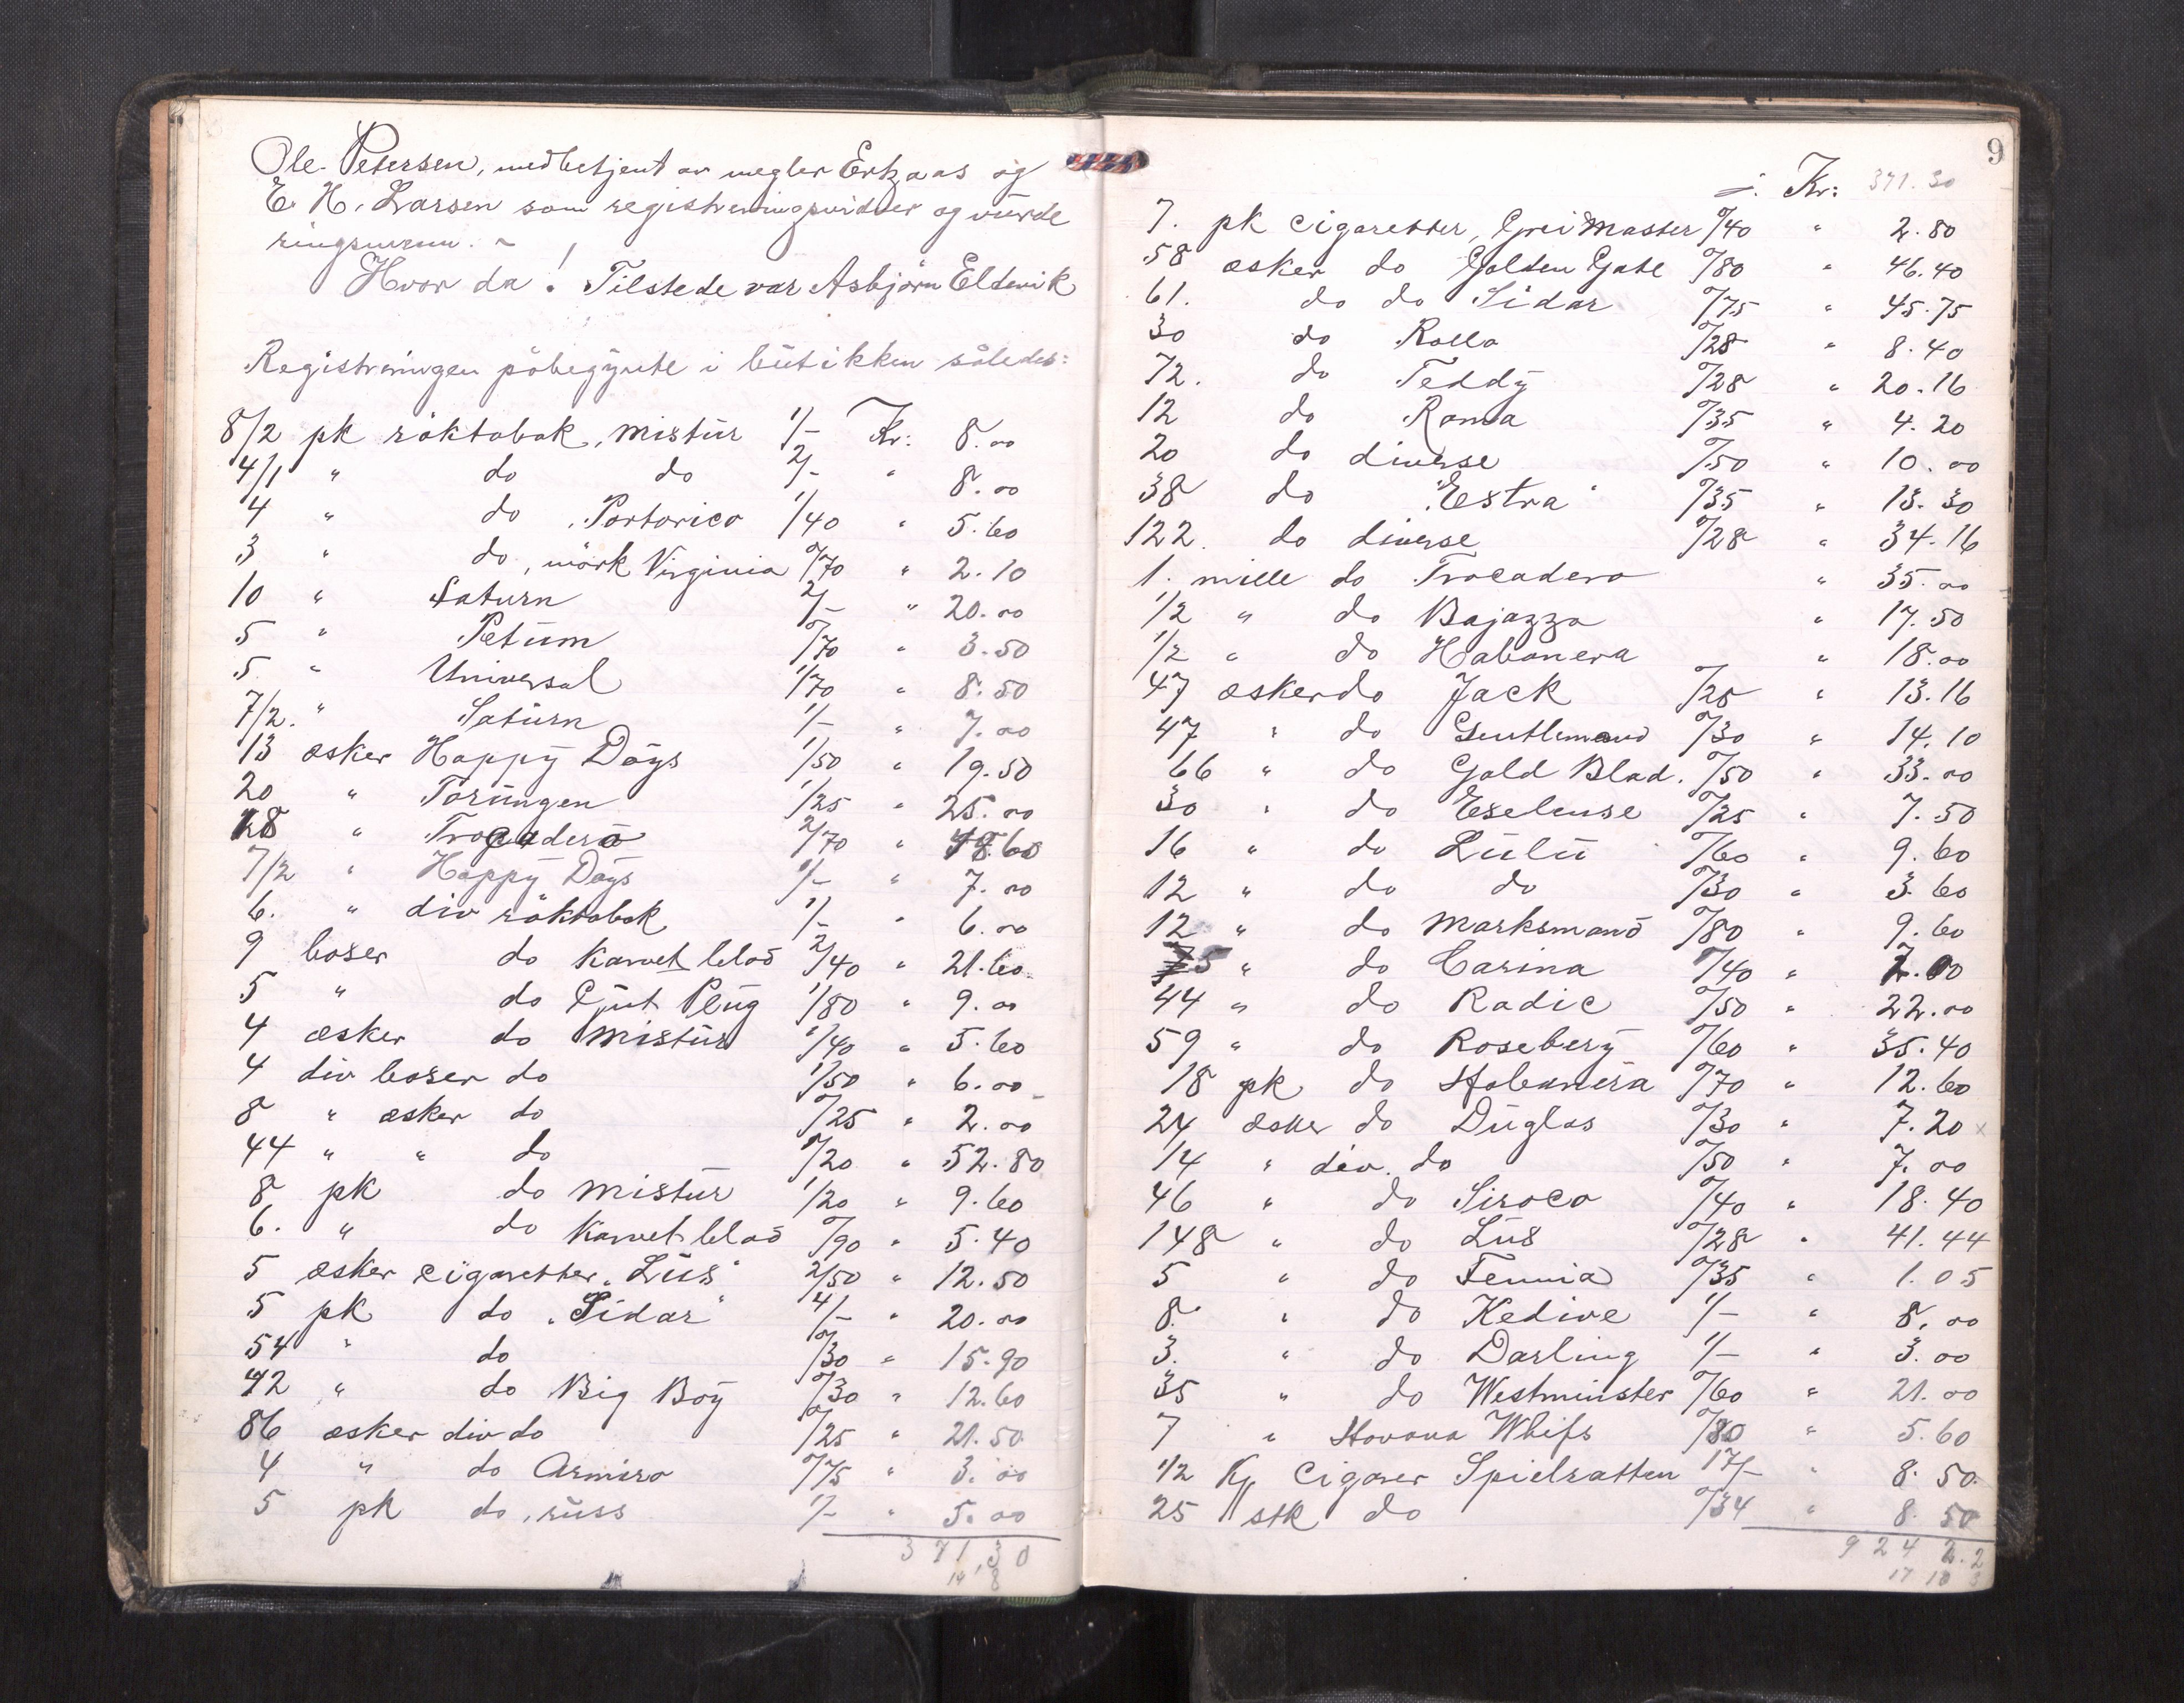 Ole Petersen, medbetjent av megler Erkaas og
E. H. Larsen som registreringsvidner og vürde
ringsmenn. -
Hvor da! Tilstede var Asbjørn Eldevik
Registreringen påbegynte i bütikken således:
8/2 pk röktobak, mistür 1/- Kr: 8.00
4/1 " do do 2/- " 8.00
4 " do, Portorico 1/40 " 5.60
3 " do, mörk Virginia 0/70 " 2.10
10 " Saturn 2/- " 20.00
5 " Petüm 0/70 " 3.50
5 " Universal 1/70 " 8.50
7/2. " Satürn 1/- " 7.00
13 esker Happy Days 1/50 " 19.50
20 " Torüngen 1/25 " 25.00
18 " Trocadero 2/70 " 48.60
7/2 " Happy Days 1/- " 7.00
6. " div röktobak 1/- " 6.00
9 boser do Karvet blad 2/40 " 21.60
5 " do Cüt Plüg 1/80 " 9.00
4 esker do mistür 1/40 " 5.60
4 div boser do 1/50 " 6.00
8 " esker do 0/25 " 2.00
44 " " do 1/20 " 52.80
8 pk do mistür 1/20 " 9.60
6. " do Karvet blad 0/90 " 5.40
5 esker cigaretter "Lüs" 2/50 " 12.50
5 pk do "Sidar" 4/- " 20.00
54 " do 0/30 " 15.90
42 " do Big Boy 0/30 " 12.60
86 esker div do 0/25 " 21.50
4 " do Armiro 0/75 " 3.00
5 pk do, rüss 1/- " 5.00
371,30
14 8
9
Kr: 371.30
7. pk cigaretter, Grei Master 0/40 " 2.80
58 esker do Golden Gate 0/80 " 46.40
61. do do Sidar 0/75 " 45.75
30 do Rolla 0/28 " 8.40
72. do Teddy 0/28 " 20.16
12 do Roma 0/35 " 4.20
20 do diverse 0/50 " 10.00
38 do "Estra" 0/35 " 13.30
122. do diverse 0/28 " 34.16
1. mille do Trocadero " 35.00
1/2 " do Bajazzo " 17.50
1/2 " do Habanera " 18.00
47 esker do Jack 0/28 " 13.16
47 " do Gentlemand 0/30 " 14.10
66 " do Gold Blad. 0/50 " 33.00
30 " do Exelense 0/25 " 7.50
16 " do Lülü 0/60 " 9.60
12 " do do 0/30 " 3.60
12 " do Marksmand 0/80 " 9.60
5 " do Carina 0/40 " 2.00
44 " do Radic 0/50 " 22.00
59 " do Rosebery 0/60 " 35.40
18 pk do Habanera 0/70 " 12.60
24 esker do Düglas 0/30 " 7.20 x
14 " div. do 0/50 " 7.00
46 " do Siroco 0/40 " 18.40
148 " do Lüs 0/28 " 41.44
5 " do Fennia 0/35 " 1.05
8. " do Kedive 1/- " 8.00
3. " do Darling 1/- " 3.00
35 " do Westminster 0/60 " 21.00
7 " Havana Whifs 0/80 " 5.60
1/2 Kg Cigarer Spielratten 17/- " 8.50
25 stk do 0/34 " 8.50
924 2.2
17 18 3